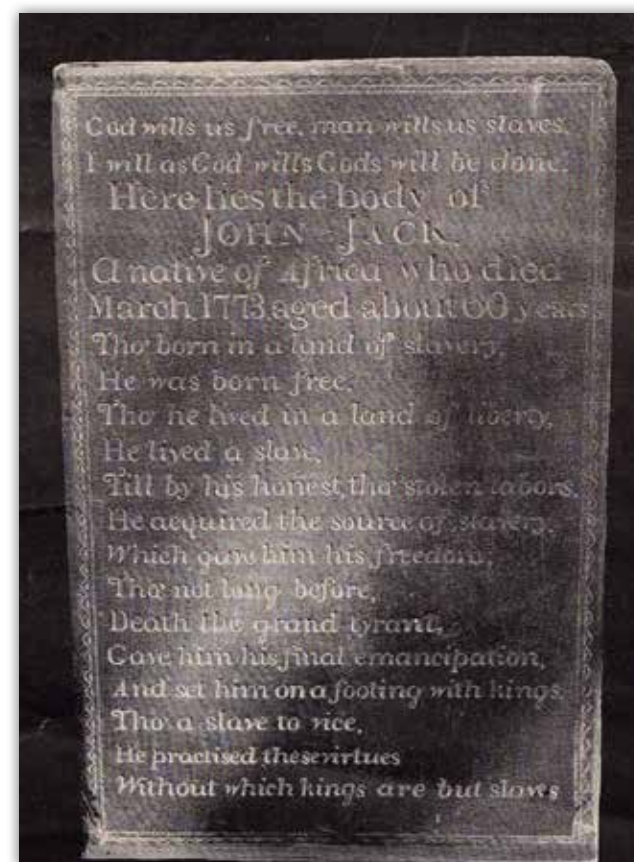 God wills us free, man wills us slaves.
I will as God wills Gods will be done.
Here lies the body of
JOHN JACK
A native of Africa who died
March 1773 aged about 60 years
Tho' born in a land of slavery,
He was born free.
Tho' he lived in a land of liberty,
He lived a slave,
Till by his honest, tho' stolen labors,
He acquired the source of slavery,
Which gave him his freedom,
Tho' not long before,
Death the grand tyrant,
Gave him his final emancipation,
And set him on a footing with kings.
Tho' a slave to vice,
He practised these virtues
Without which kings are but slaves